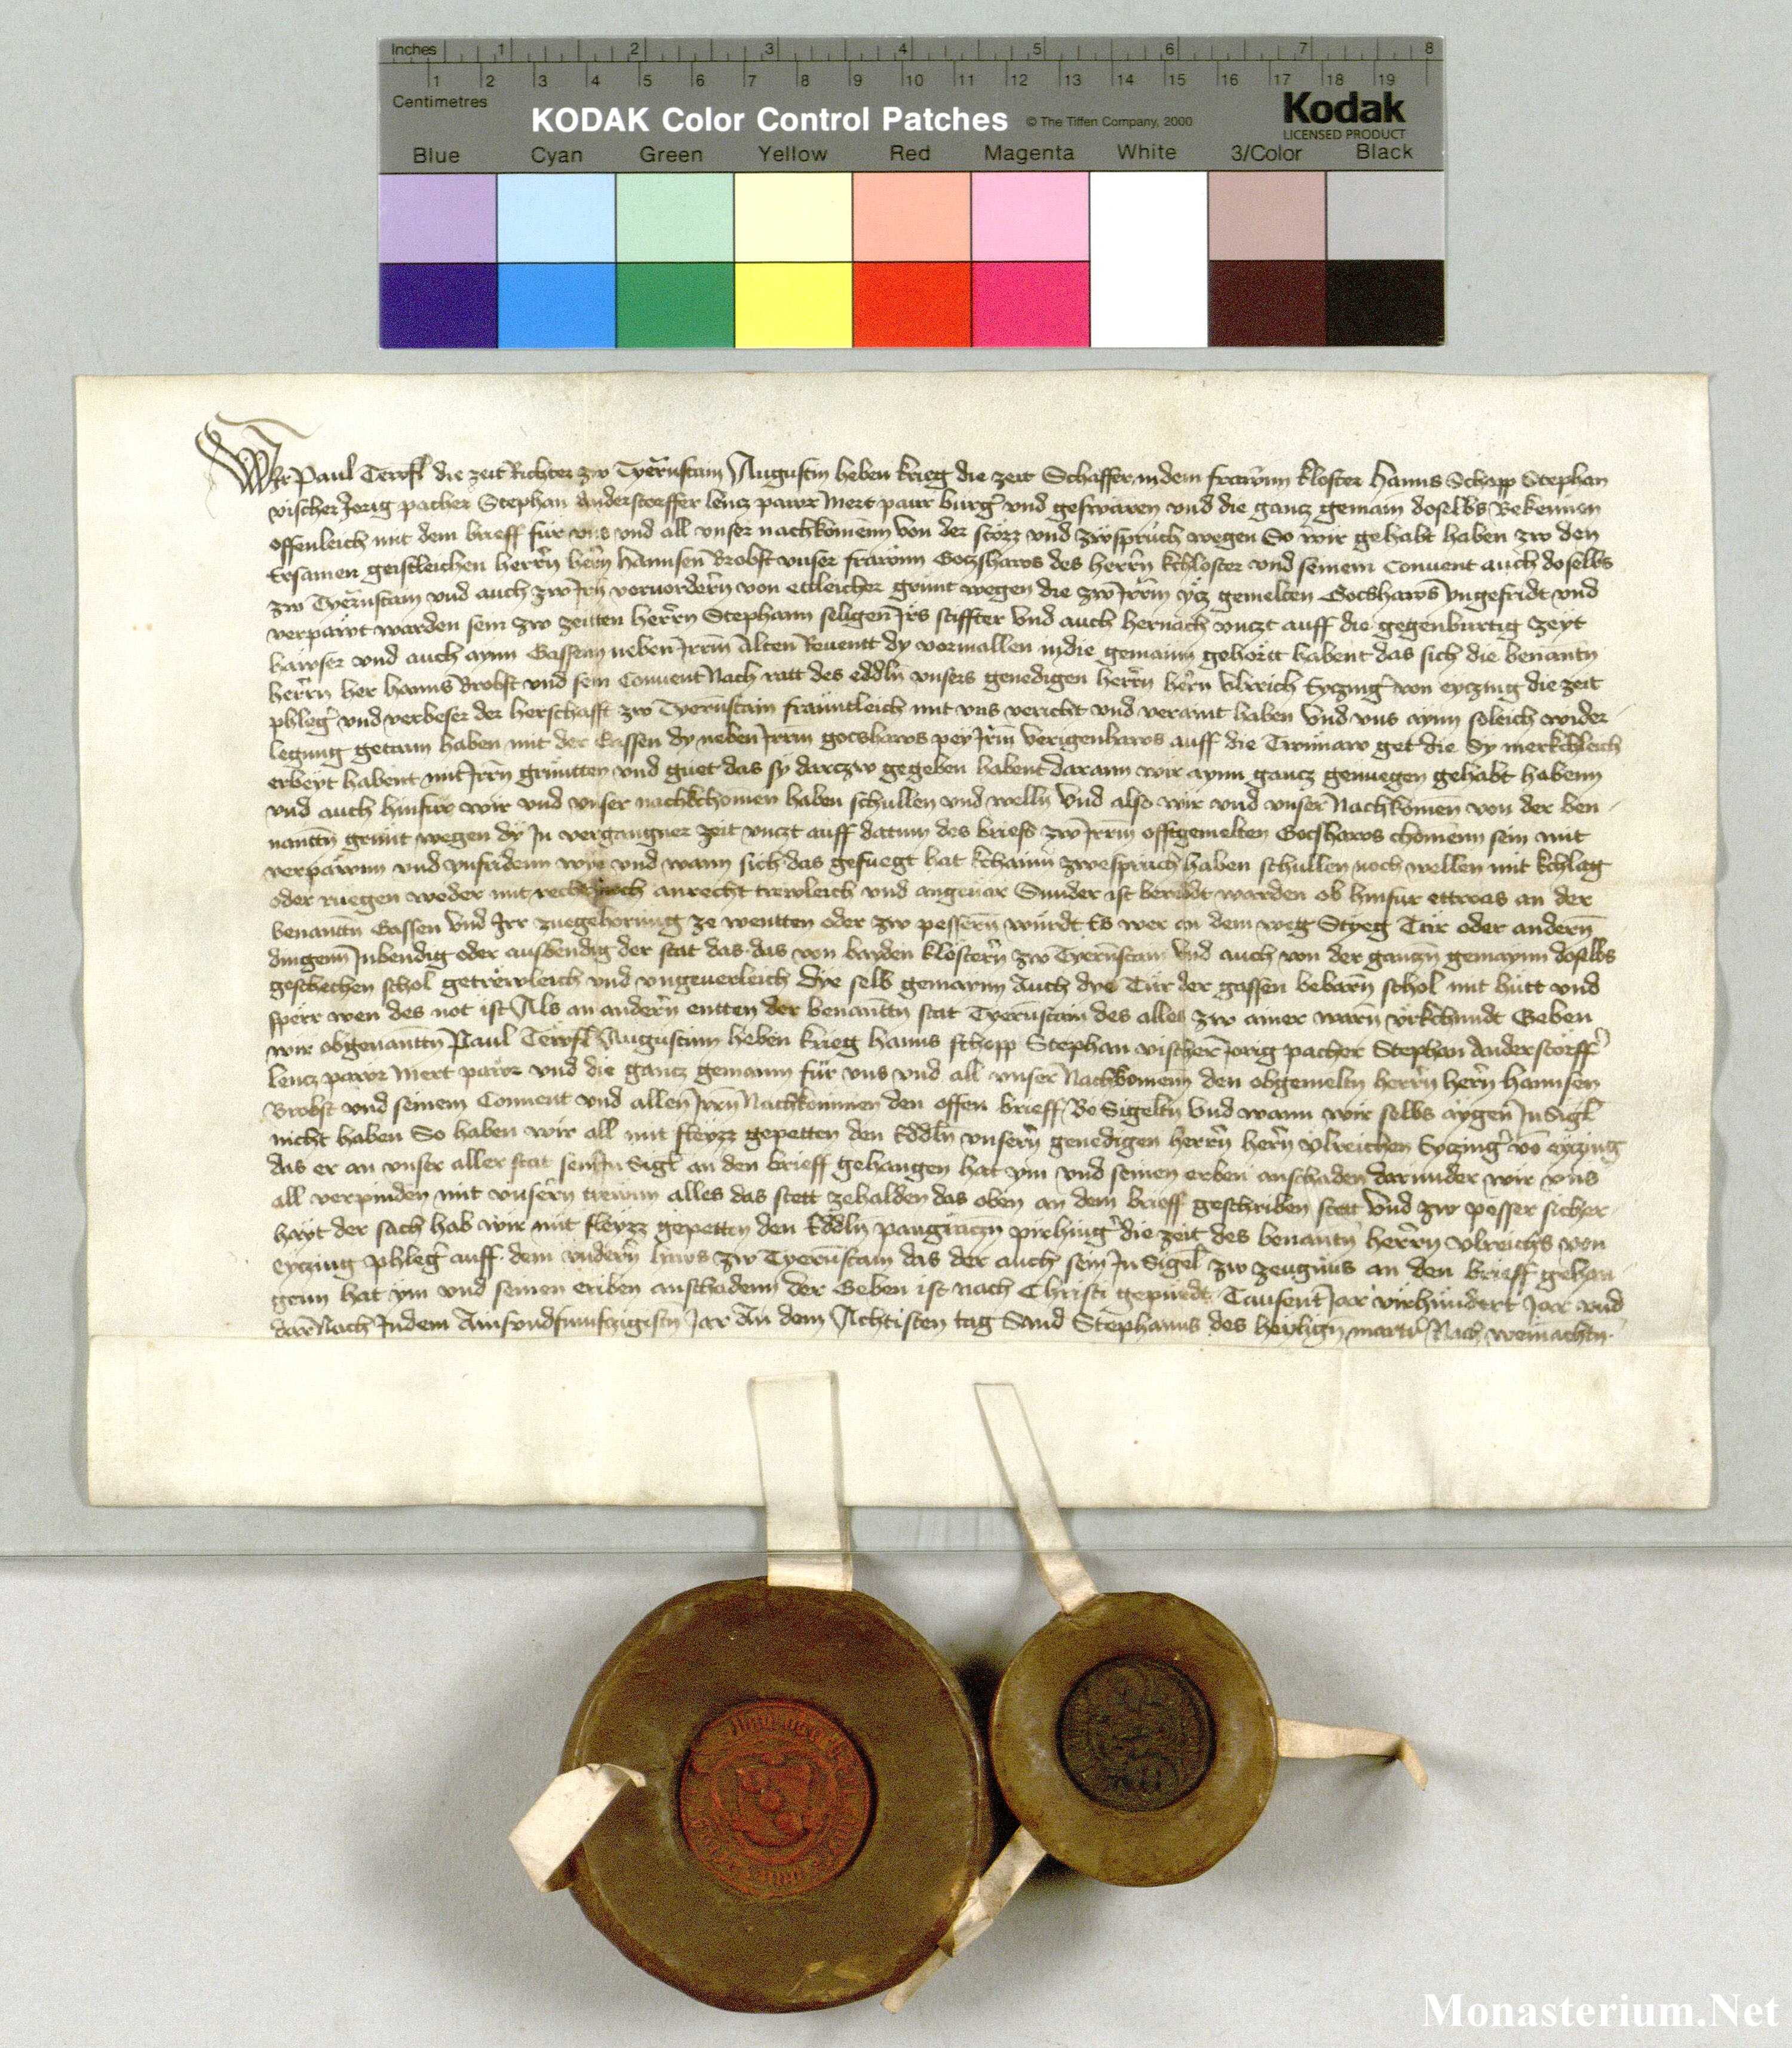 Inches 1 2 3 4 5 6 7 8
1 2 3 4 5 6 7 8 9 10 11 12 13 14 15 16 17 18 19
Centimetres
KODAK Color Control Patches © The Tiffen Company, 2000 Kodak
LICENSED PRODUCT
Blue Cyan Green Yellow Red Magenta White 3/Color Black
Wir Paul Tewfl die zeit Richter zw Tyernstain Augustin heben krieg die zeit Schaffer in dem frawnn kloster Hanns Schopp Stephan
vischer Jorig pacher Stephan Anderstorffer lencz pawr Mert paur burger und gesworen und die gancz gemain doselbs Bekennen
offenleich mit dem brieff für uns und all unser nachkomenn von der stözz und zwspruch wegen So wir gehabt haben zw den
Ersamen geistleichen herrn hern Hannsen Brobst unser frawnn Goczhaws des herrn kchloster und seinem Convent auch doselbs
zw Tyernstain und auch zw Irn vorvordern von ettleicher grunt wegen die zw Irrm ycz gemelten Gocshaws yngefridt und
verpawt warden sein zw zeitten herrn Stephann seligen Irs stiffter Und auch hernach unczt auff die gegenburtig zeyt
hawser und auch aynn Gassenn neben Irrm Alten Reventt dy vormallen in die gemainn gehört habent das sich die benantn
herrn her Hanns Brobst und sein Convent Nach ratt des eddln unsers genedigen herrn hern Ulreich Eyczinger von eyczing die zeit
phleger und verbeser der herschafft zw Tyernstain frauntleich mit uns vericht und veraint haben Und uns aynn soleich wider
legung getann haben mit der Gassen dy neben Irrm gocshaws pey Irm Verigenhaws auff die Tuenaw get die Sy merkchleich
erbeyt habent mit Irrn gruntten und guet das sy darczw gegeben habent daran wir aynn gancz genuegen gehabt habenn
und auch hinfur wir und unser nachkchomen haben schullen und welln Und also wir und unser Nachkomen von der ben
nantn grunt wegen dy In vergangner zeit unczt auff datum des briefs zw Irrm offtgemelten Gocshaws chomenn sein mit
verpawnn und ynfridenn wye und wann sich das gefuegt hat kchainn zwespruch haben schullen noch wellen mit kchlag
oder ruegen weder mit recht noch anrecht trewleich und angevar Sunder ist beredt warden ob hinfur ettwas an der
benantn Gassen Und Irr zuegehorung ze wentten oder zw pessern wurdt Es wer an dem weg Styeg Tür oder andern
dingenn Inbendig oder ausbendig der stat das das von bayden klöstern zw Tyernstain Und auch von der ganczn gemaynn doselbs
geschechen schol getrewleich und ungeuerleich Dye selb gemaynn Auch dye Tür der gassen bebarn schol mit hütt und
sperr wen des not ist Als an andern entten der benanttn stat Tyernstain des alles zw ainer warn urkchundt Geben
wir obgenanttn Paul Tewfl Augustinn heben krieg Hanns schopp Stephan vischer Jorig pacher Stephan Anderstorffer
lencz pawr Mert pawr und die gancz gemainn für uns und all unser Nachkomenn den obgemeltn herrn hern Hannsen
Brobst und seinem Convent und allen Irrn Nachkommen den offen brieff Vo Sigeltn Und wann wir selbs aygen InSigl
nicht haben So haben wir all mit fleyzz gepetten den Eddln unsern genedigen herrn hern Ulreichen Eyczinger von eyczing
das er an unser aller stat sein InSigl an den brieff gehangen hat ym und seinen erben anschaden darunder wir uns
all verpinden mit unsern trewnn alles das stett zehalden das oben an dem brieff geschriben stett Und zw pesser sicher
hayt der sach hab wir mit fleyzz gepettn den Eddln pangraczn pirhinger die zeit des benantn herrn Ulreichs von
eyczing phleger auff dem undern haws zw Tyernstain das der auch sein InSigel zw zeugnus an den brieff gehan
genn hat ym und seinen eriben anschadenn Der Geben ist nach Christi gepürdt Tausent Jar virhundert Jar und
darNach Indem Ainsundfumfczigistn Jar An dem Achtisten tag Sand Stephanns des heylign martrer Nach weinachtn
Monasterium.Net